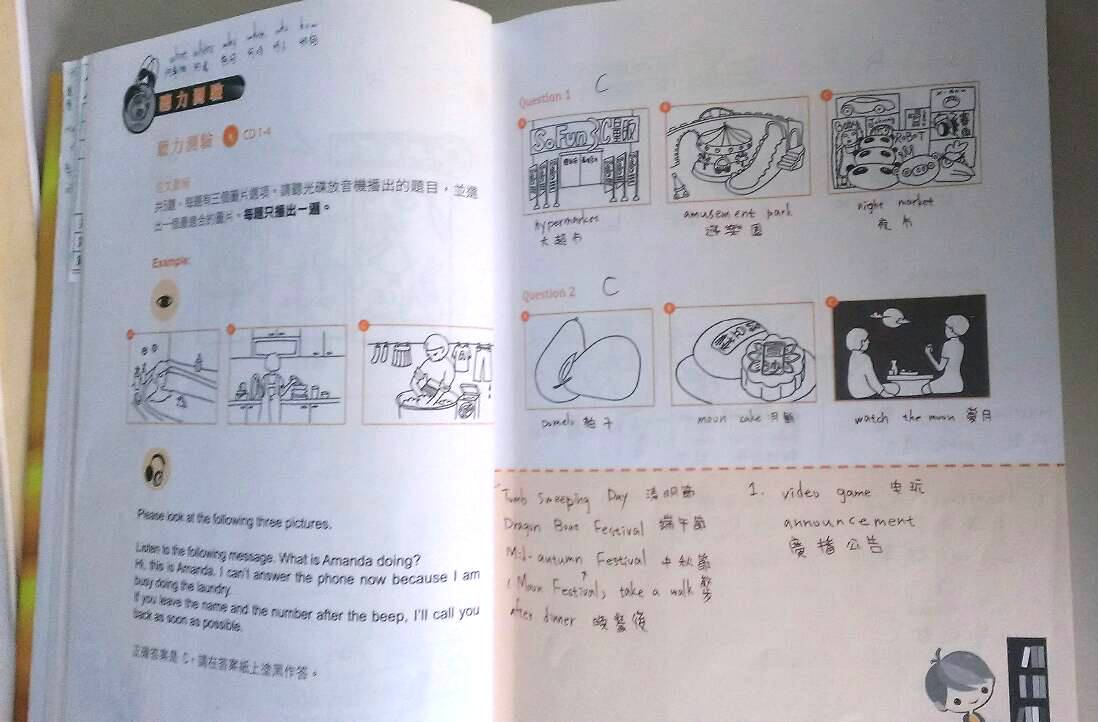 what where why when who how
聽力測驗
聽力測驗 CD 1-4
共5題,每題有三個圖片選項。請聽光碟放音機播出的題目,並選
出一個最適合的圖片。每題只播出一遍。
Example:
A
B
C
Please look at the following three pictures.
Listen to the following message. What is Amanda doing?
Hi, this is Amanda. I can't answer the phone now because I am
busy doing the laundry.
If you leave the name and the number after the beep, I'll call you
back as soon as possible.
正確答案是 C,請在答案紙上塗黑作答。
Question 1 C
A
B
C
SoFun 3C量販
ROBOT
hypermarket
大超市
amusement park
遊樂園
night market
夜市
Question 2 C
A
B
C
pomelo 柚子
moon cake 月餅
watch the moon 賞月
Tomb Sweeping Day 清明節
Dragon Boat Festival 端午節
Mid-autumn Festival 中秋節
(Moon Festival) take a walk 散步
after dinner 晚餐後
1. video game 电玩
announcement
廣播公告